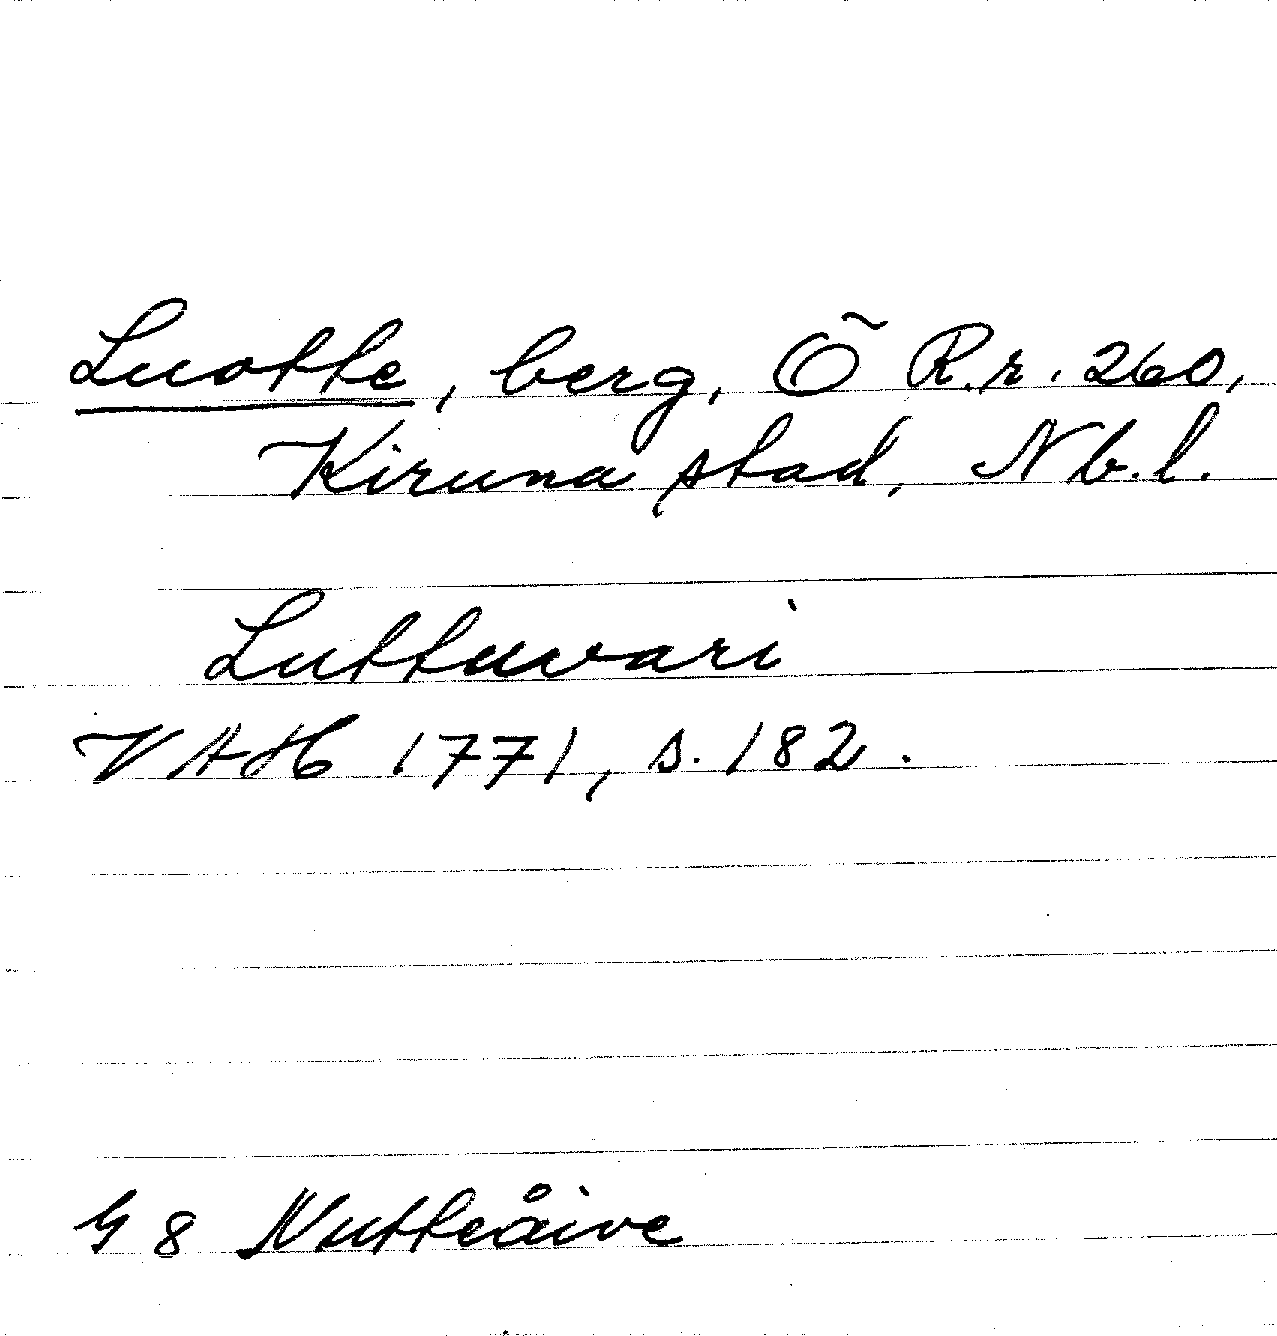 Luotte, berg, Ö R.r. 260,
Kiruna stad, Nb.l.
Luttuvari
VAH 1771, s. 182.
G 8 Nutteåive